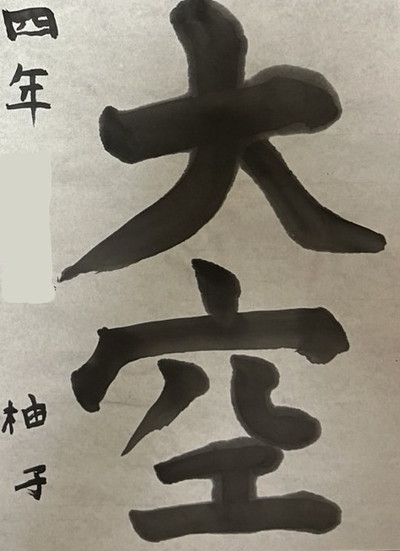 大空
四年 柚子